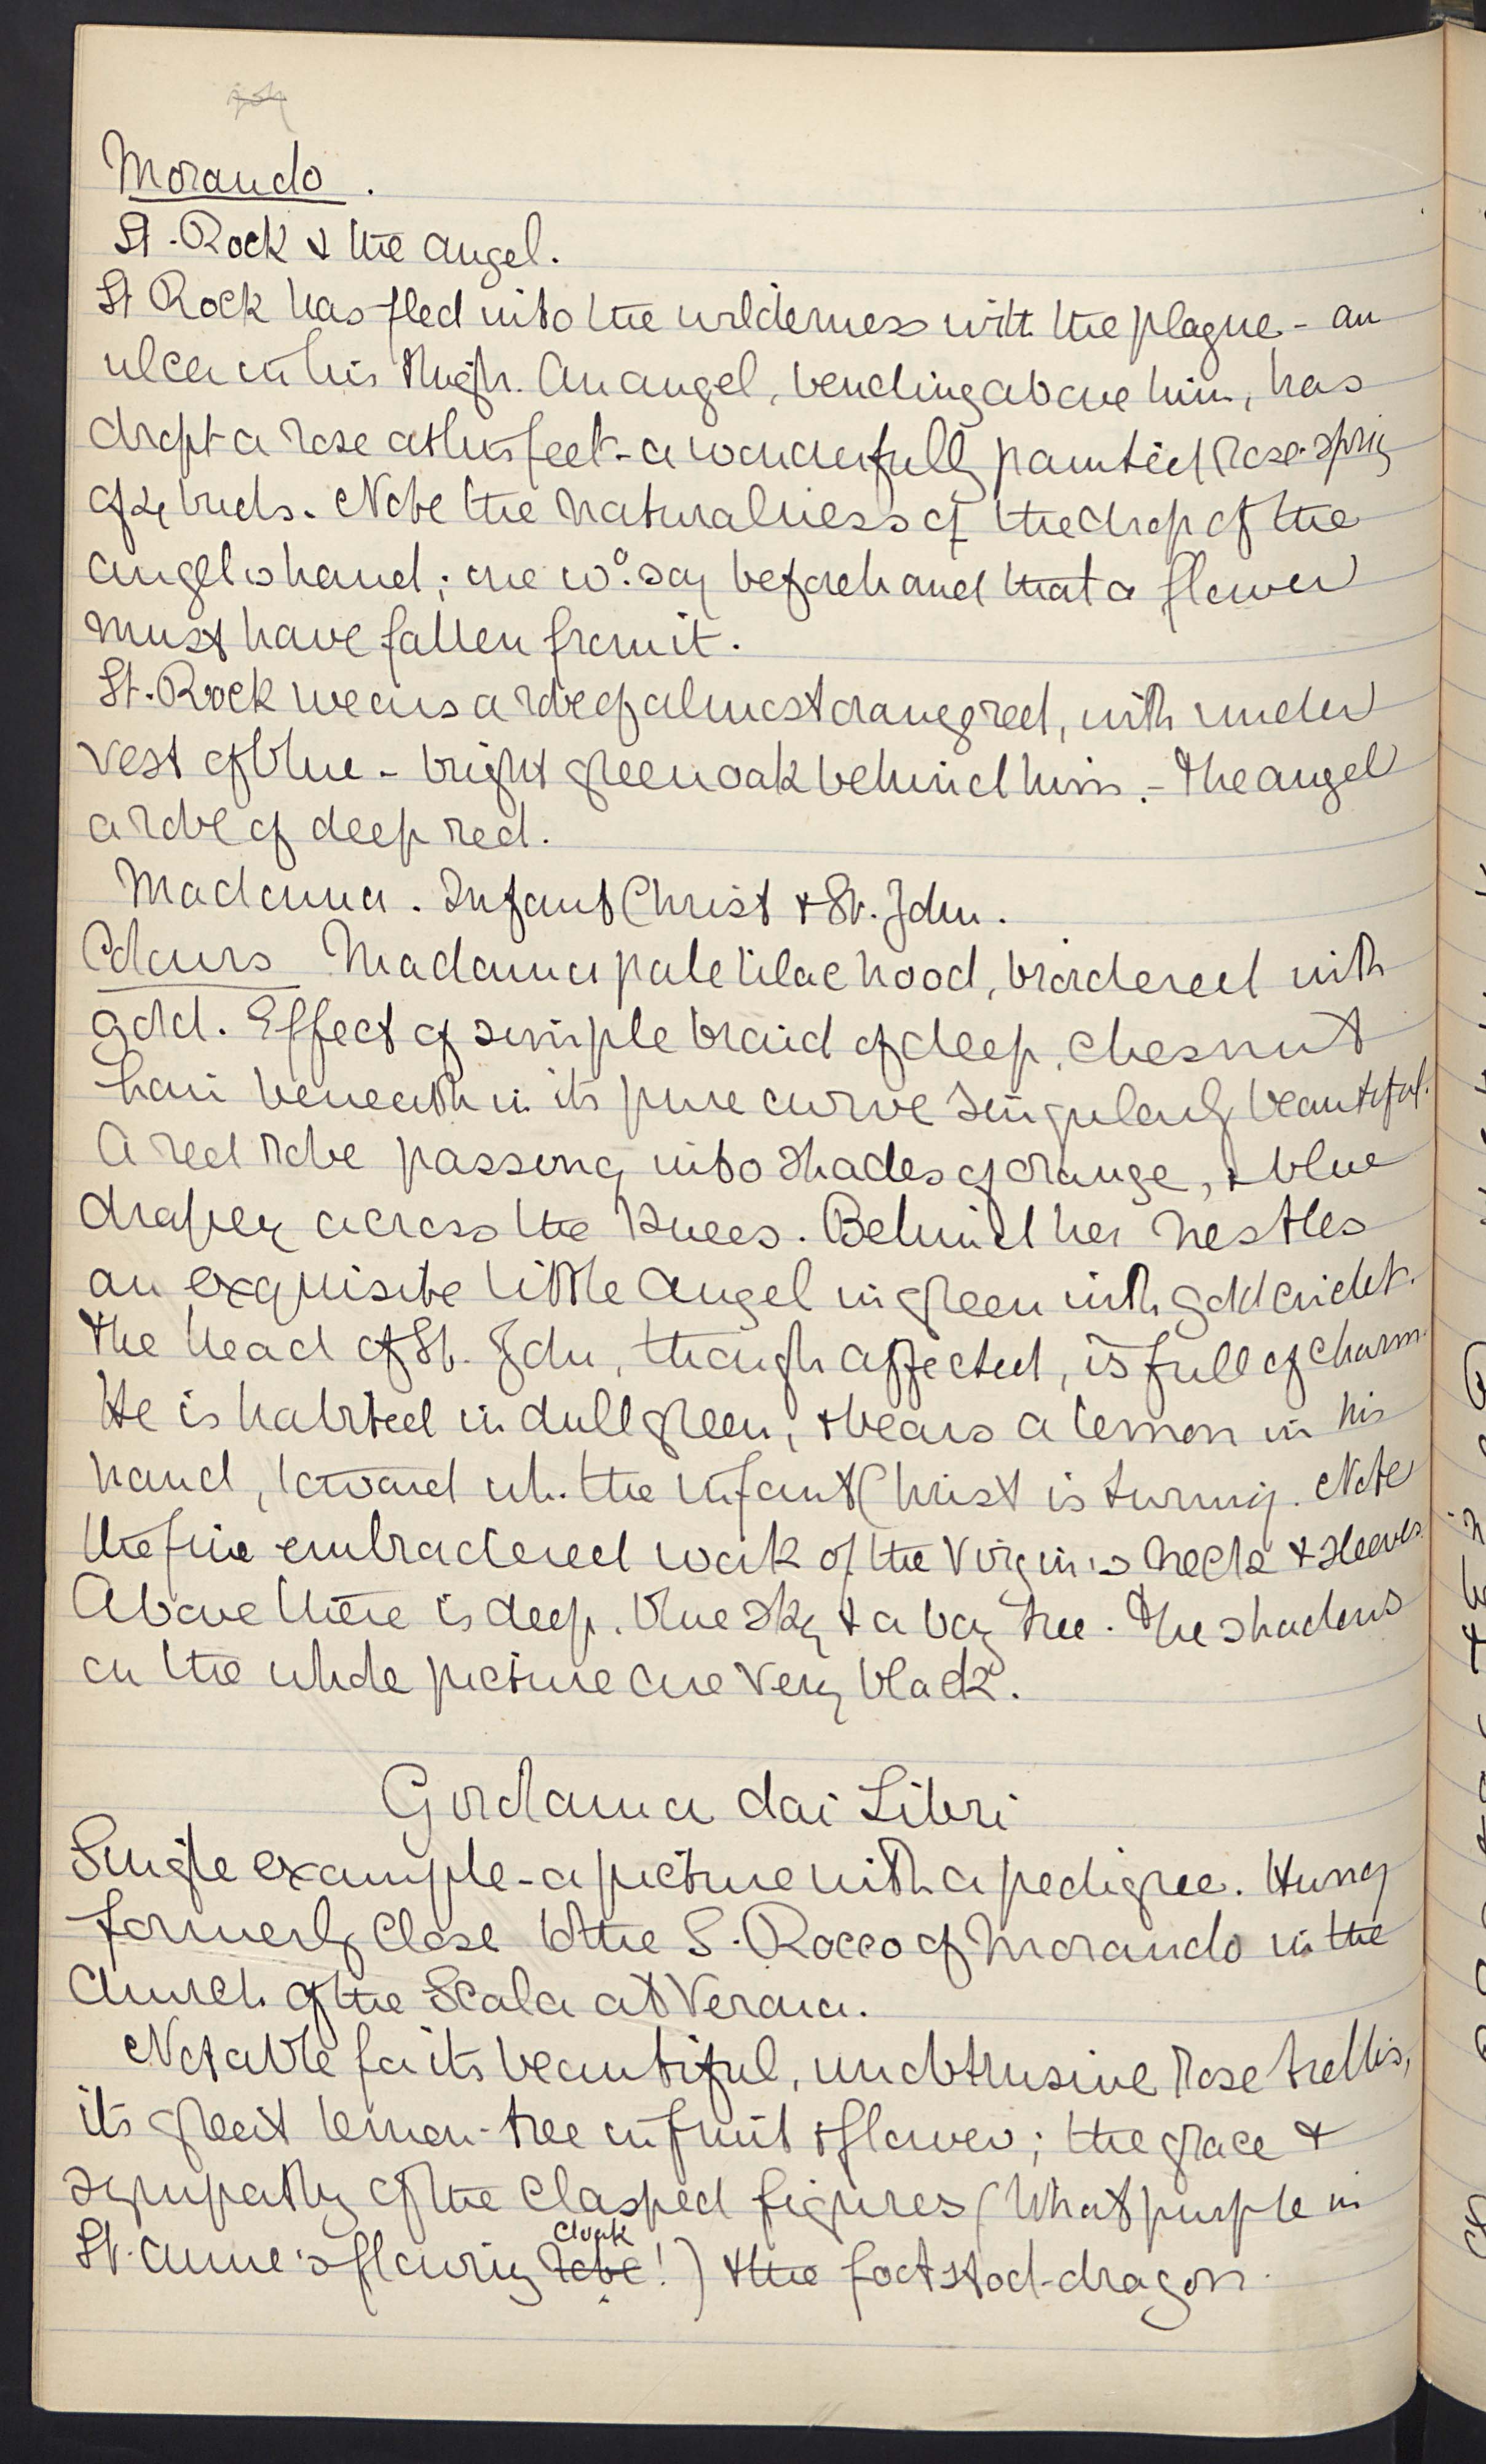 Morando.
St. Rock & the angel.
St Rock has fled into the wilderness with the plague - an
ulcer in his thigh. An angel, bending above him, has
dropt a rose at his feet - a wonderfully painted rose-sprig
of 2 buds. Note the naturalness of the drop of the
angel's hand; one wd. say beforehand that a flower
must have fallen from it.
St. Rock wears a robe of almost orange red, with under
vest of blue - bright green oak behind him. - The angel
a robe of deep red.
Madonna. Infant Christ & St. John.
Colours Madonna pale lilac hood, broidered with
gold. Effect of simple braid of deep, chesnut
hair beneath in its pure curve singularly beautiful.
A red robe passing into shades of orange, & blue
drapery across the knees. Behind her nestles
an exquisite little angel in green with gold circlet.
The head of St. John, though affected, is full of charm.
He is habited in dull green, & bears a lemon in his
hand, toward wh. the infant Christ is turning. Note
the fine embroidered work of the Virgin's neck & sleeves.
Above there is deep, blue sky & a bay tree. The shadows
on the whole picture are very black.
Girolamo dai Libri
Single example - a picture with a pedigree. Hung
formerly close to the S. Rocco of Morando in the
Church of the Scala at Verona.
Notable for its beautiful, unobtrusive rose trellis,
its great lemon-tree in fruit & flower; the grace &
sympathy of the clasped figures (What purple in
St. Anne's flowing robe cloak!) & the footstool-dragon.